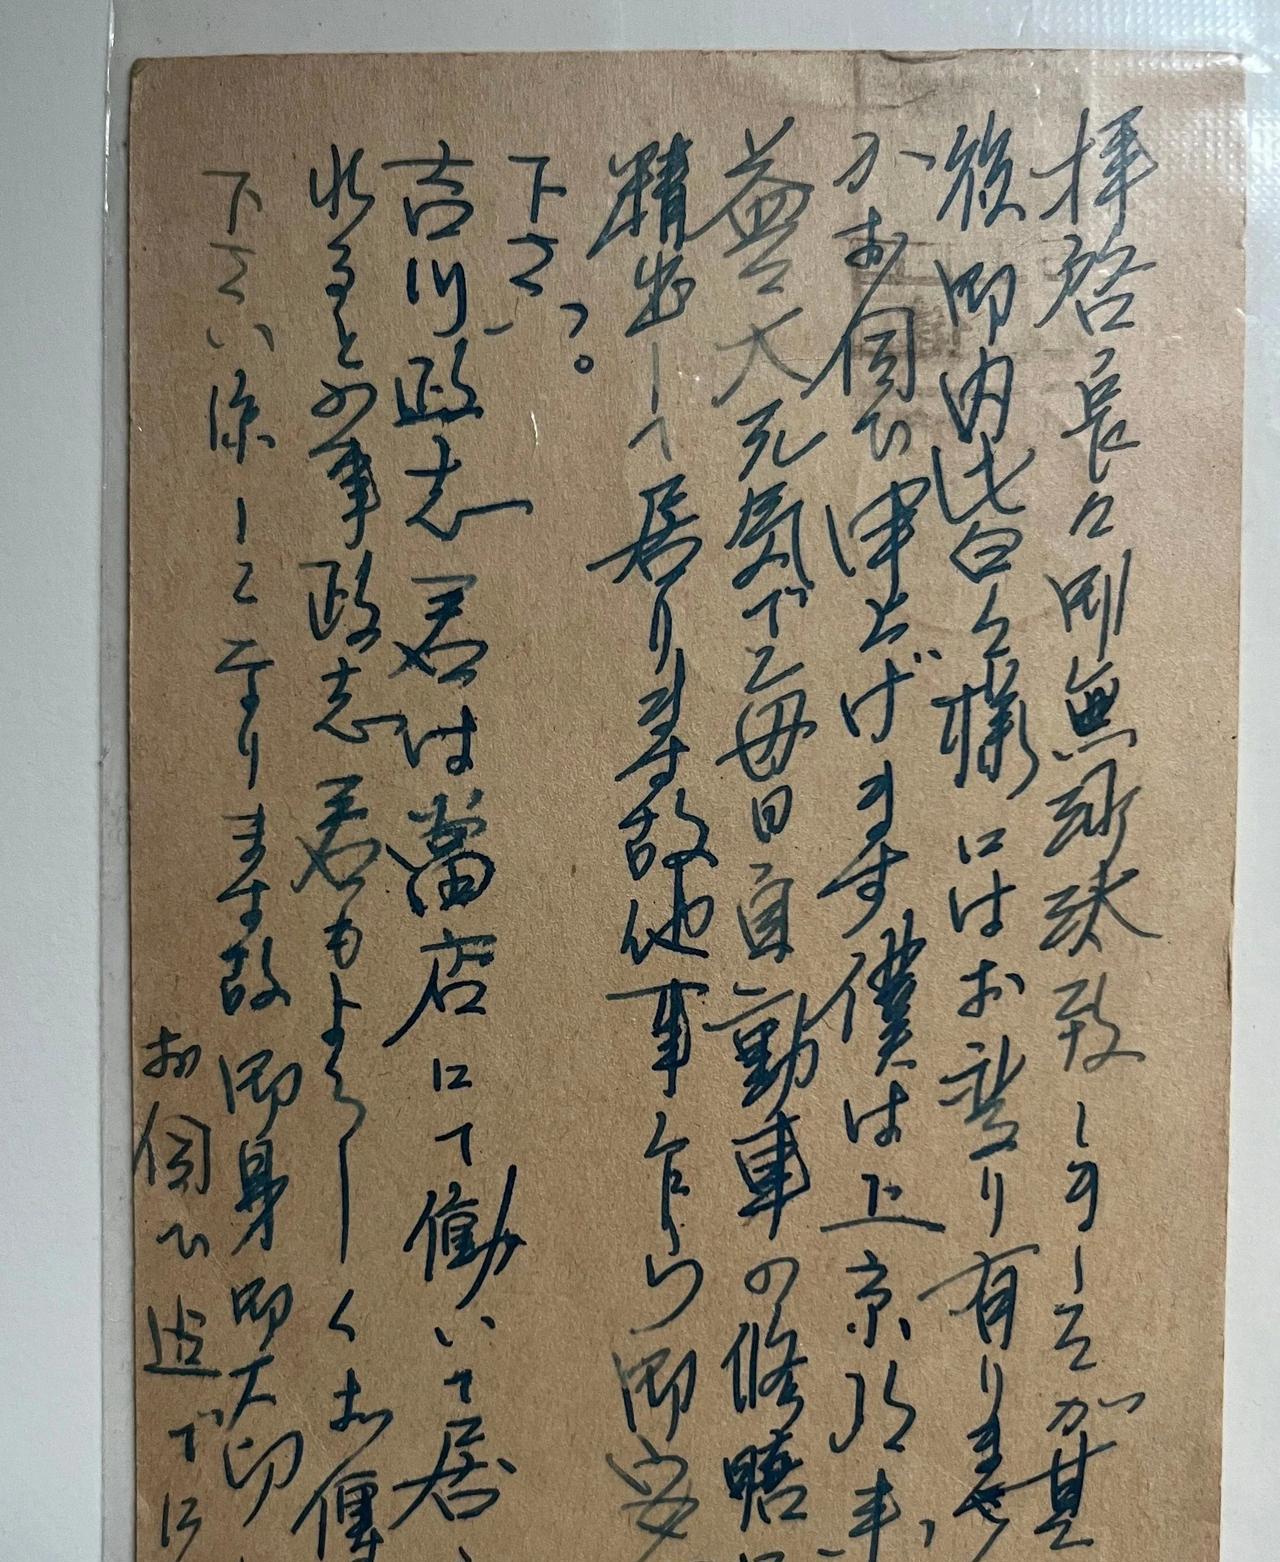 拝啓 長々御無沙汰致しましたが其
後御内皆々様にはお変り有りませ
かお伺ひ申上げます 僕は上京以来
益々大元気でて毎日自動車の修
精出して居ります故他事乍ら御安
下さい。
吉川政志君は當店にて働いて居
れるとの事政志君もよろしくお傳
下さい 涼しくなりますす故 御身御大切
お伺ひ迄に